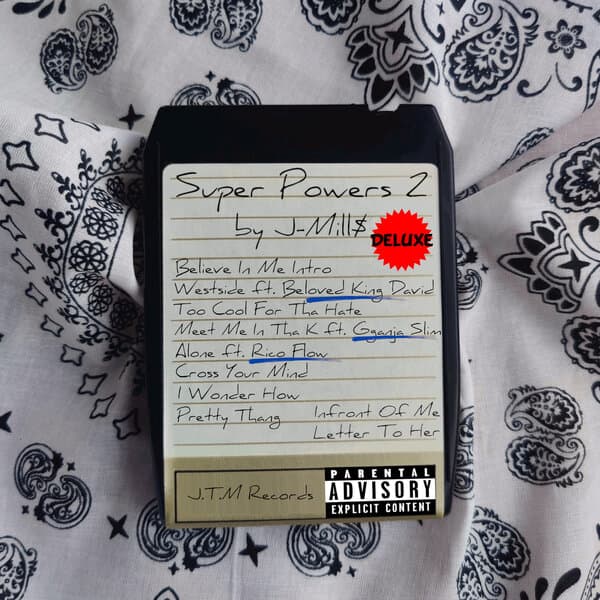 Super Powers 2
by J-Mill$
DELUXE
Believe In Me Intro
Westside ft. Beloved King David
Too Cool For Tha Hate
Meet Me In Tha K ft. Gganja Slim
Alone ft. Rico Flow
Cross Your Mind
I Wonder How
Pretty Thang Infront Of Me
Letter To Her
J.T.M Records
PARENTAL
ADVISORY
EXPLICIT CONTENT